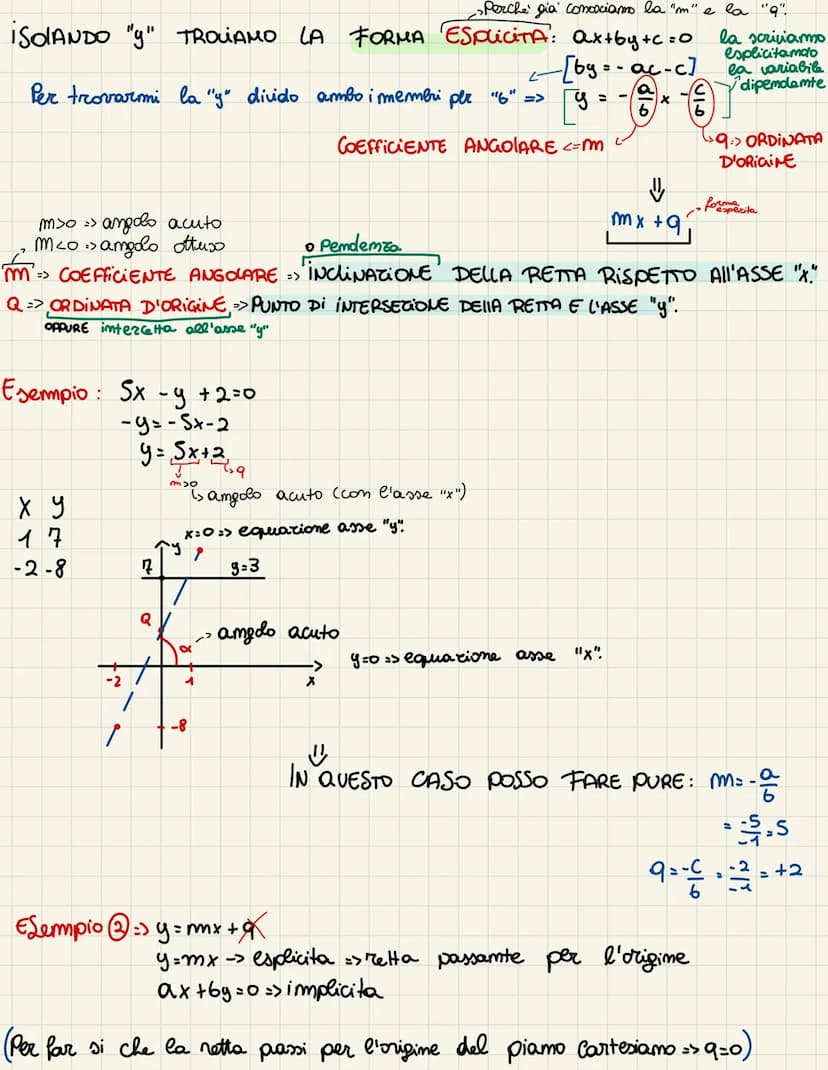 ↳Perché già conosciamo la "m" e la "q".
ISOLANDO "y" TROVIAMO LA FORMA ESPLICITA: ax+by+c=0
la scriviamo
esplicitando
la variabile
dipendente
[by = - ac - c]
Per trovarmi la "y" divido ambo i membri per "b" => [y = - a/b x - c/b
COEFFICIENTE ANGOLARE <= m
q => ORDINATA
D'ORIGINE
⇓
mx + q
forma
esplicita
m>0 => angolo acuto
m<0 => angolo ottuso
• Pendenza
m => COEFFICIENTE ANGOLARE => INCLINAZIONE DELLA RETTA RISPETTO All'ASSE "x".
Q => ORDINATA D'ORIGINE => PUNTO DI INTERSEZIONE DEllA RETTA E l'ASSE "y".
OPPURE intercetta all'asse "y"
Esempio: 5x - y + 2 = 0
- y = - 5x - 2
y = 5x + 2
q
m>0
↳ angolo acuto (con l'asse "x")
x y
1 7
-2 -8
x=0 => equazione asse "y".
y
7
y=3
Q
α
-> angolo acuto
y=0 => equazione asse "x".
-2
1
x
-8
⇓
IN QUESTO CASO POSSO FARE PURE: m = - a/b
= -5/-1 = 5
q = -c/b = -2/-1 = +2
ESempio ② => y = mx + q
y = mx -> esplicita => retta passante per l'origine
ax + by = 0 => implicita
(Per far si che la retta passi per l'origine del piano Cartesiano => q=0)